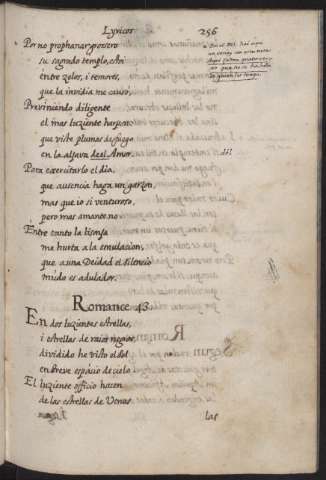 Lyricos 256
Por no prophanar grosero
su sagrado templo, està
entre zelos, i temores,
que la invidia me causo,
Previniendo diligente
el mas luziente harpon
que viste plumas de fuego
en la aljava deel Amor.
Para exercitarlo el dia,
que ausencia haga un garzon,
mas que io venturoso,
pero mas amante no
Entre tanto la lisonja
me hurta a la emulacion,
que a una Deidad el silencio
mudo es adulador.
Romance 43
En dos luzientes estrellas,
i estrellas de raios negros,
dividido he visto el Sol
en breve espacio de cielo
El luziente officio hacen
de las estrellas de Venus
las